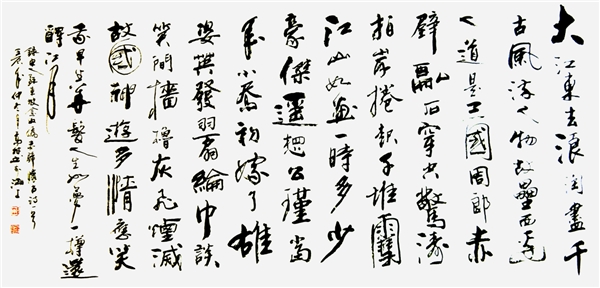 大江東去浪淘盡千
古風流人物故壘西邊
人道是三國周郎赤
壁亂石穿空驚濤
拍岸捲起千堆雪
江山如畫一時多少
豪傑遥想公瑾當
年小喬初嫁了雄
姿英發羽扇綸巾談
笑間檣櫓灰飛煙滅
故國神遊多情應笑
我早生華髮人生如夢一樽還
酹江月